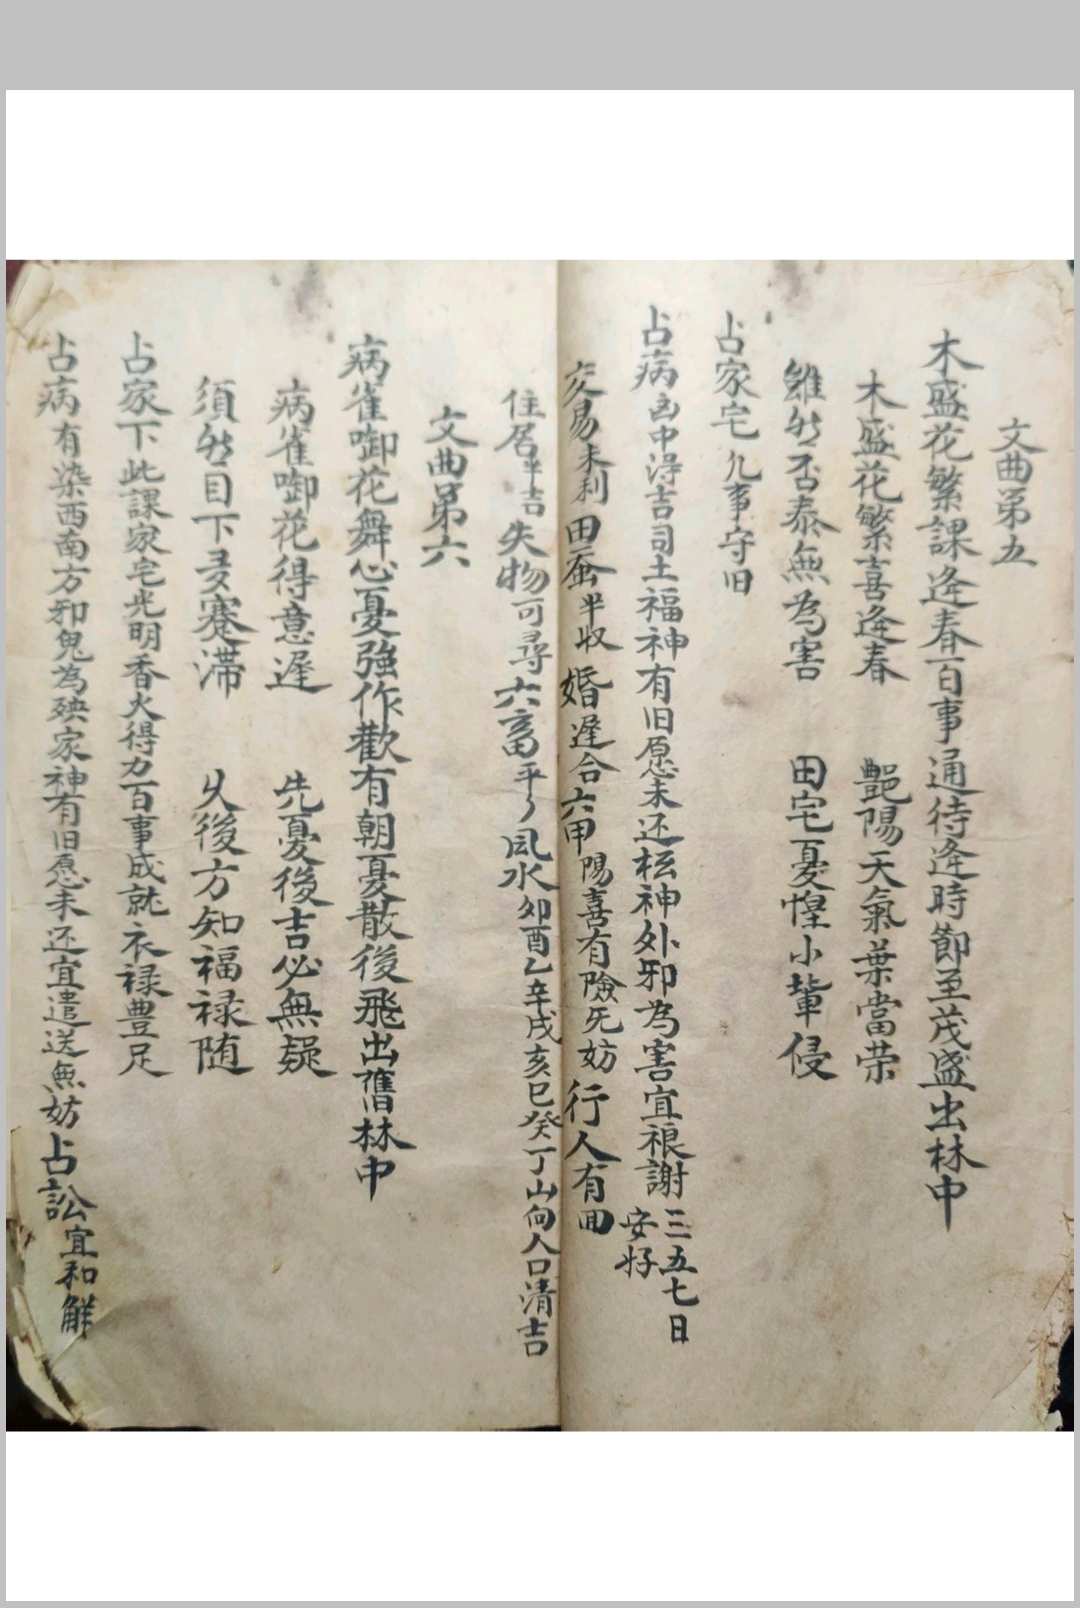 文曲第五
木盛花繁課逢春百事通待逢時節至茂盛出林中
木盛花繁喜逢春 艷陽天氣葉當荣
雖然否泰無為害 田宅憂惶小輩侵
占家宅凢事守旧
占病凶中淂吉司土福神有旧愿未还枟神外邪為害宜禳謝三五七日安好
交易未利田蚕半收婚遲合六甲陽喜有險旡妨行人有囬
住居半吉失物可尋六畜平々風水卯酉乙辛戌亥巳癸丁山向人口清吉
文曲第六
病雀啣花舞心憂強作歡有朝憂散後飛出舊林中
病雀啣花得意遲 先憂後吉必無疑
須然目下多蹇滯 久後方知福禄随
占家下此課家宅光明香火得力百事成就衣禄豊足
占病有染西南方邪鬼為殃家神有旧愿未还宜遣送無妨占訟宜和解